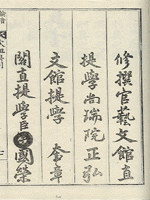 修撰官藝文館直
提學尚瑞院正弘
文館提學
奎章
閣直提學臣
國榮